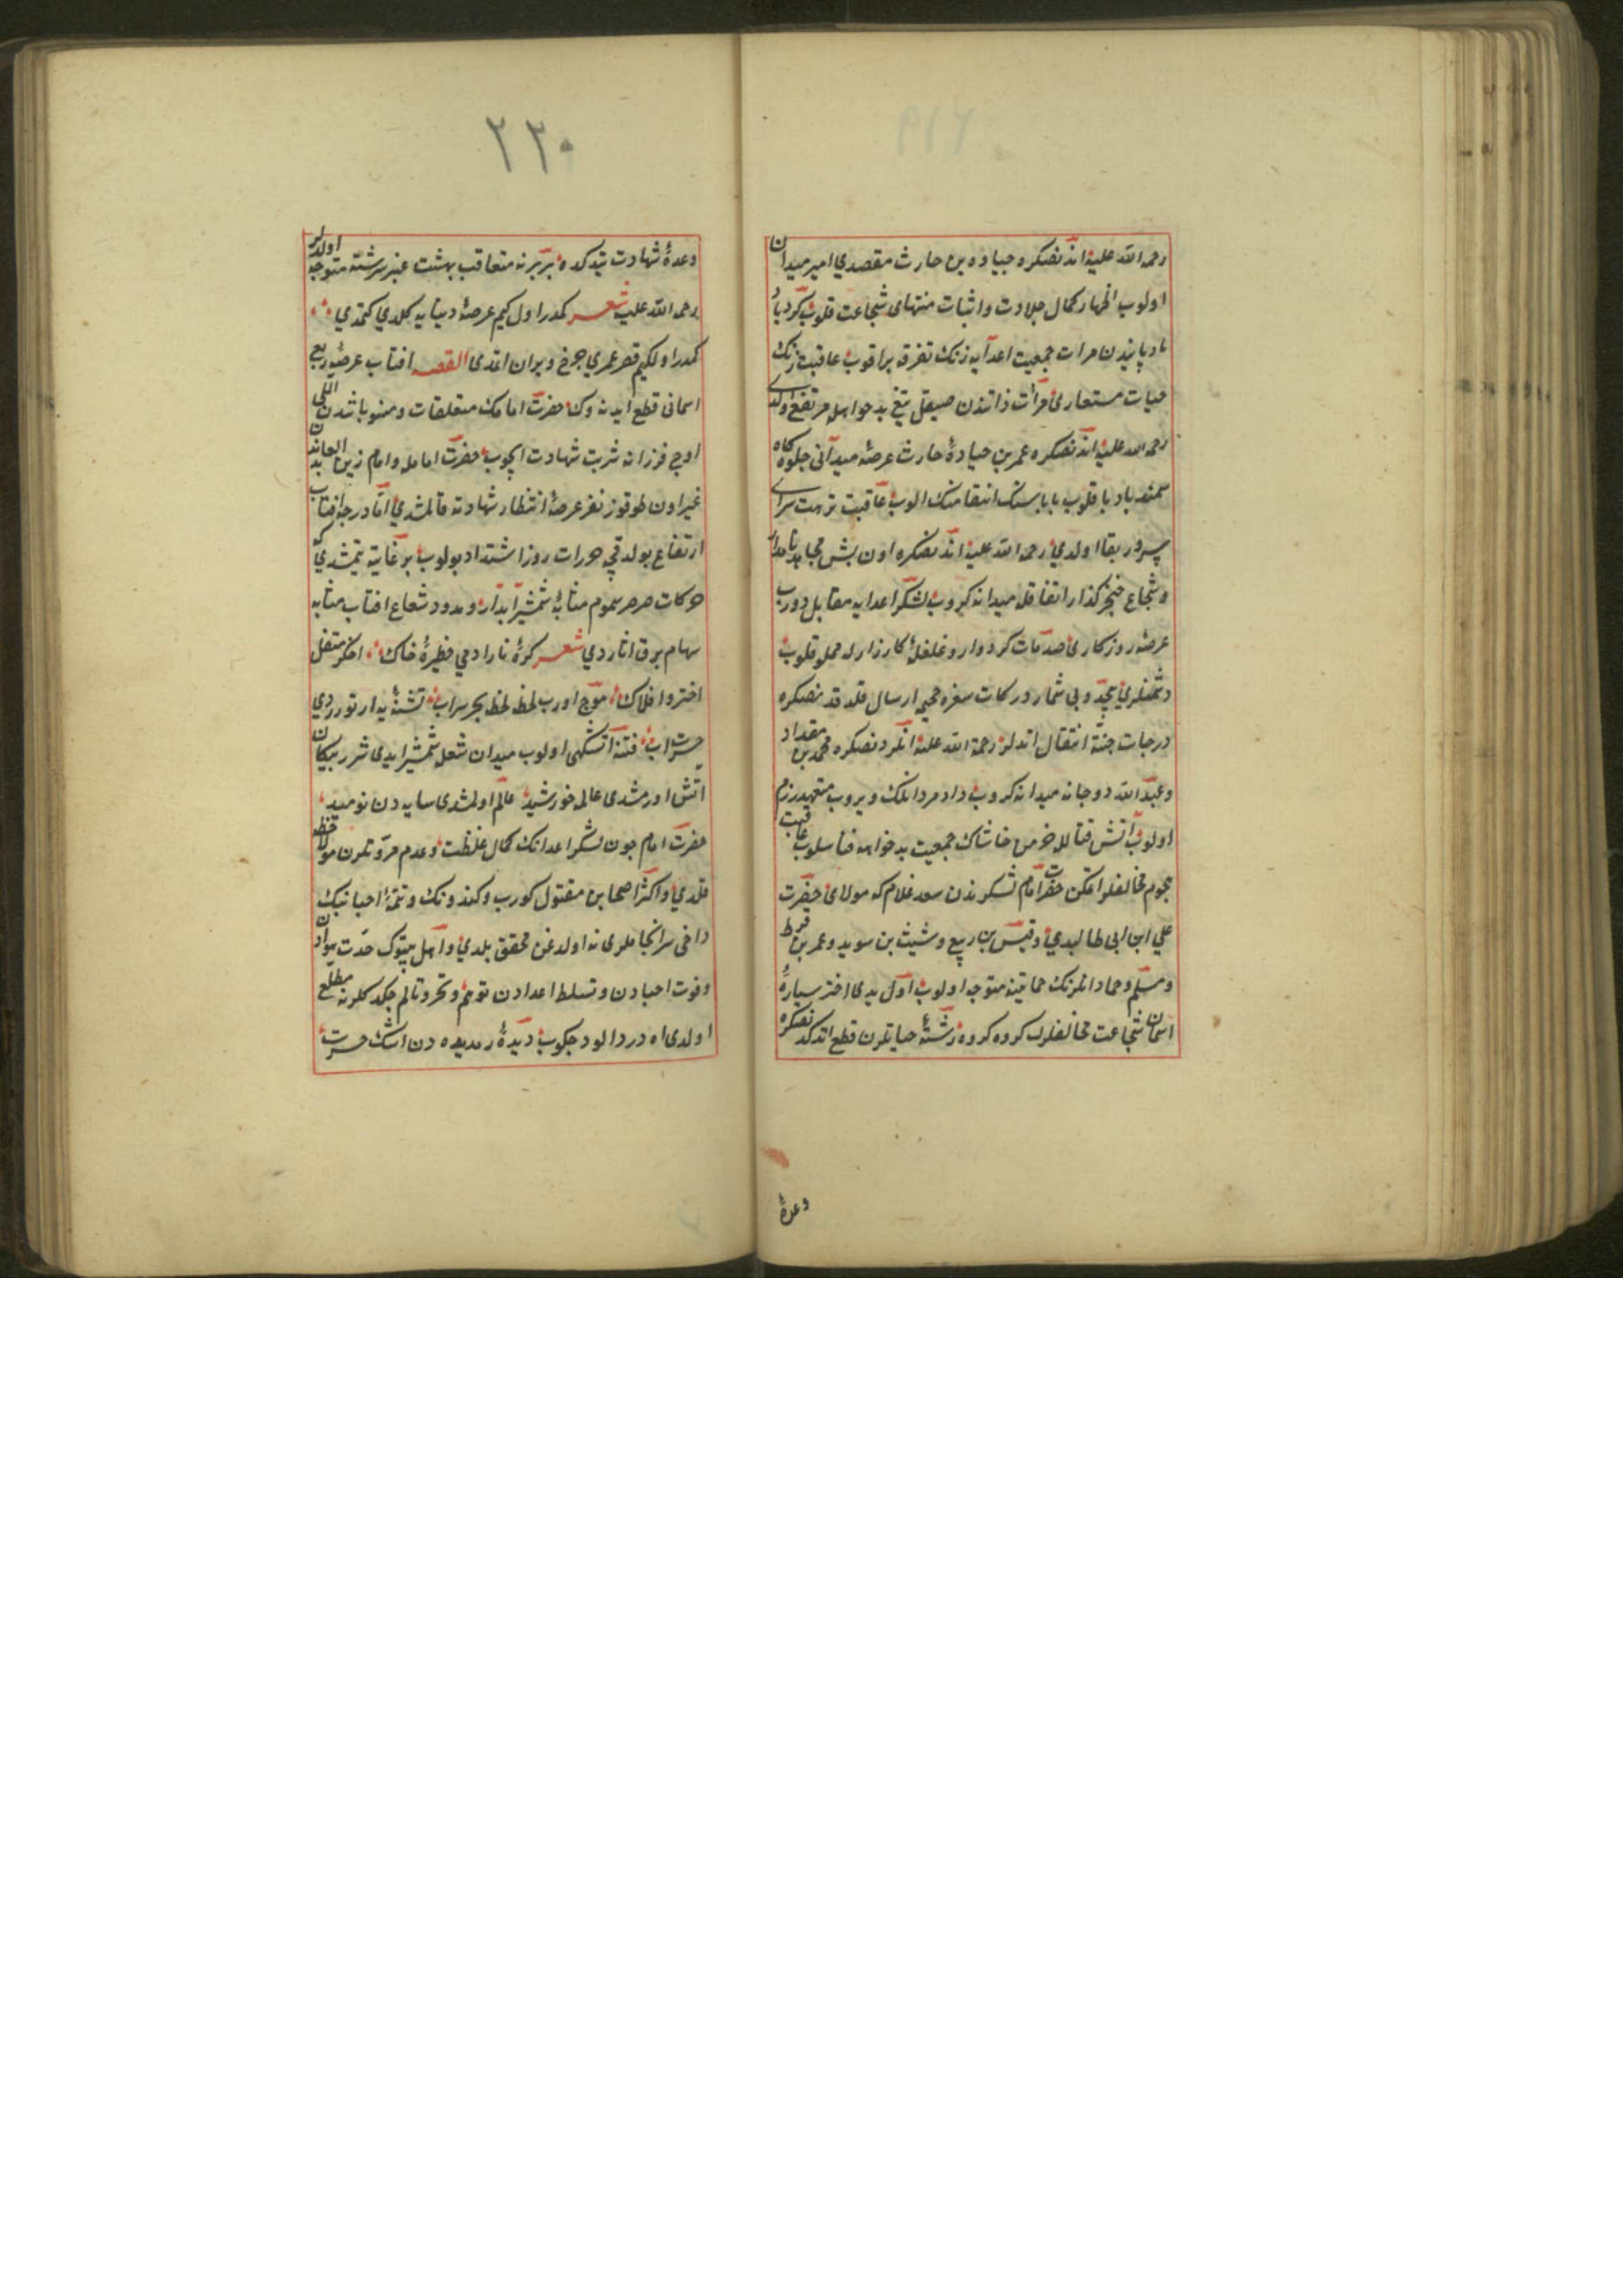 رحمه الله علیه اندنصکره جباده بن حارث مقصدی امیر میدان
اولوب اظهار کمال جلادت واثبات منتهای شجاعت قلوب کرد باد
بادپایندن مرات جمعیت اعدایه ژنک تفرقه براقوب عاقبت ژنک
حیات مستعاری مرآت ذاتندن صیقل تیغ بدخواهله مرتفع اولدی
رحمه الله علیه اندنصکره عمر بن جباده حارث عرصهٔ میدانی جلوه کاه
سمند بادپا قلوب بابا سنک انتقامنک الوب عاقبت نزهت سرای
سرور بقا اولدی رحمه الله علیه اندنصکره اون بش مجاهد نامدار
وشجاع خنجرکذار اتفاقله میدانه کروب لشکر اعدایه مقابل دورب
عرصهٔ روزکاری صدمات کردوار وغلغلهٔ کارزارله مملو قلوب
دشمنلری بیحد وبی شمار درکات سفره محیی ارسال قلدقدنصکره
درجات جنته انتقال اتدلر رحمة الله علیه انلردنصکره محمد بن مقداد
وعبدالله دوجانه میدانه کروب داد مردانلک ویروب متعهد رزم
اولوب آتش قتالله خرمن خاشاک جمعیت بدخواهه فنا سلوب عاقبت
هجوم مخالفلر اتمکن حضرت امام لشکرندن سعد غلام که مولای حضرت
علی ابن ابی طالبدی وقیس بن ربیع وشیث بن سوید وعمر بن قرط
ومسلم وحماد انلرنک حمایتنه متوجه اولوب اول یدی اختر سیارهٔ
اسمان شجاعت مخالفلرک کروه کروه رشتهٔ حیاتلرن قطع اتدکدنصکره
وعدهٔ
٢٢٠
وعدهٔ شهادت یتدکده بربرنه متعاقب بهشت عنبرسرشته متوجه اولدیلر
رحمه الله علیه شعر کمدر اول کیم عرصهٔ دنیایه کلدی کتمدی
کمدر اولکیم قصر عمری چرخ ویران اتمدی القصه افتاب عرصهٔ ربع
اسمانی قطع ایدنه دک حضرت امامک متعلقات ومنسوباتندن اللی
اوچ فرزانه شربت شهادت ایچوب حضرت امامله وامام زین العابدیندن
غیر اون طوقوز نفر عرصهٔ انتظار شهادته قالمشدی اما درجه افتاب
ارتفاع بولدقچه حرارت روز اشتداد بولوب بر غایته یتمشدی که
حرکات صرصر سموم مثابهٔ شمشیر ابدار وحدود شعاع افتاب مثابه
سهام برق اثاردی شعر کرهٔ نارا دمی خطیرهٔ خاک اخکر متقل
اختر وافلاک موج اورب لحظه لحظه بحر سراب تشنه یه ارتوردی
حسرت اب فتنه آتشکهی اولوب میدان شعله شمشیر ایدی شرر پیکان
اتش اورمشدی عالمه خورشید عالم اولمشدی سایه دن نومید
حضرت امام چون لشکر اعدانک کمال غلظت وعدم مروتلرن ملاحظه
قلدی واکثر اصحابن مقتول کورب وکندونک وتتمهٔ احبانک
داخی سرانجاملری نه اولدغن محقق بلدی واهل بیتوک
وفوت احبادن وتسلط اعدادن توهم وتحیر وتالم چکدکلرنه مطلع
اولدی اه دردالود چکوب دیدهٔ رمدیده دن اشک حسرت